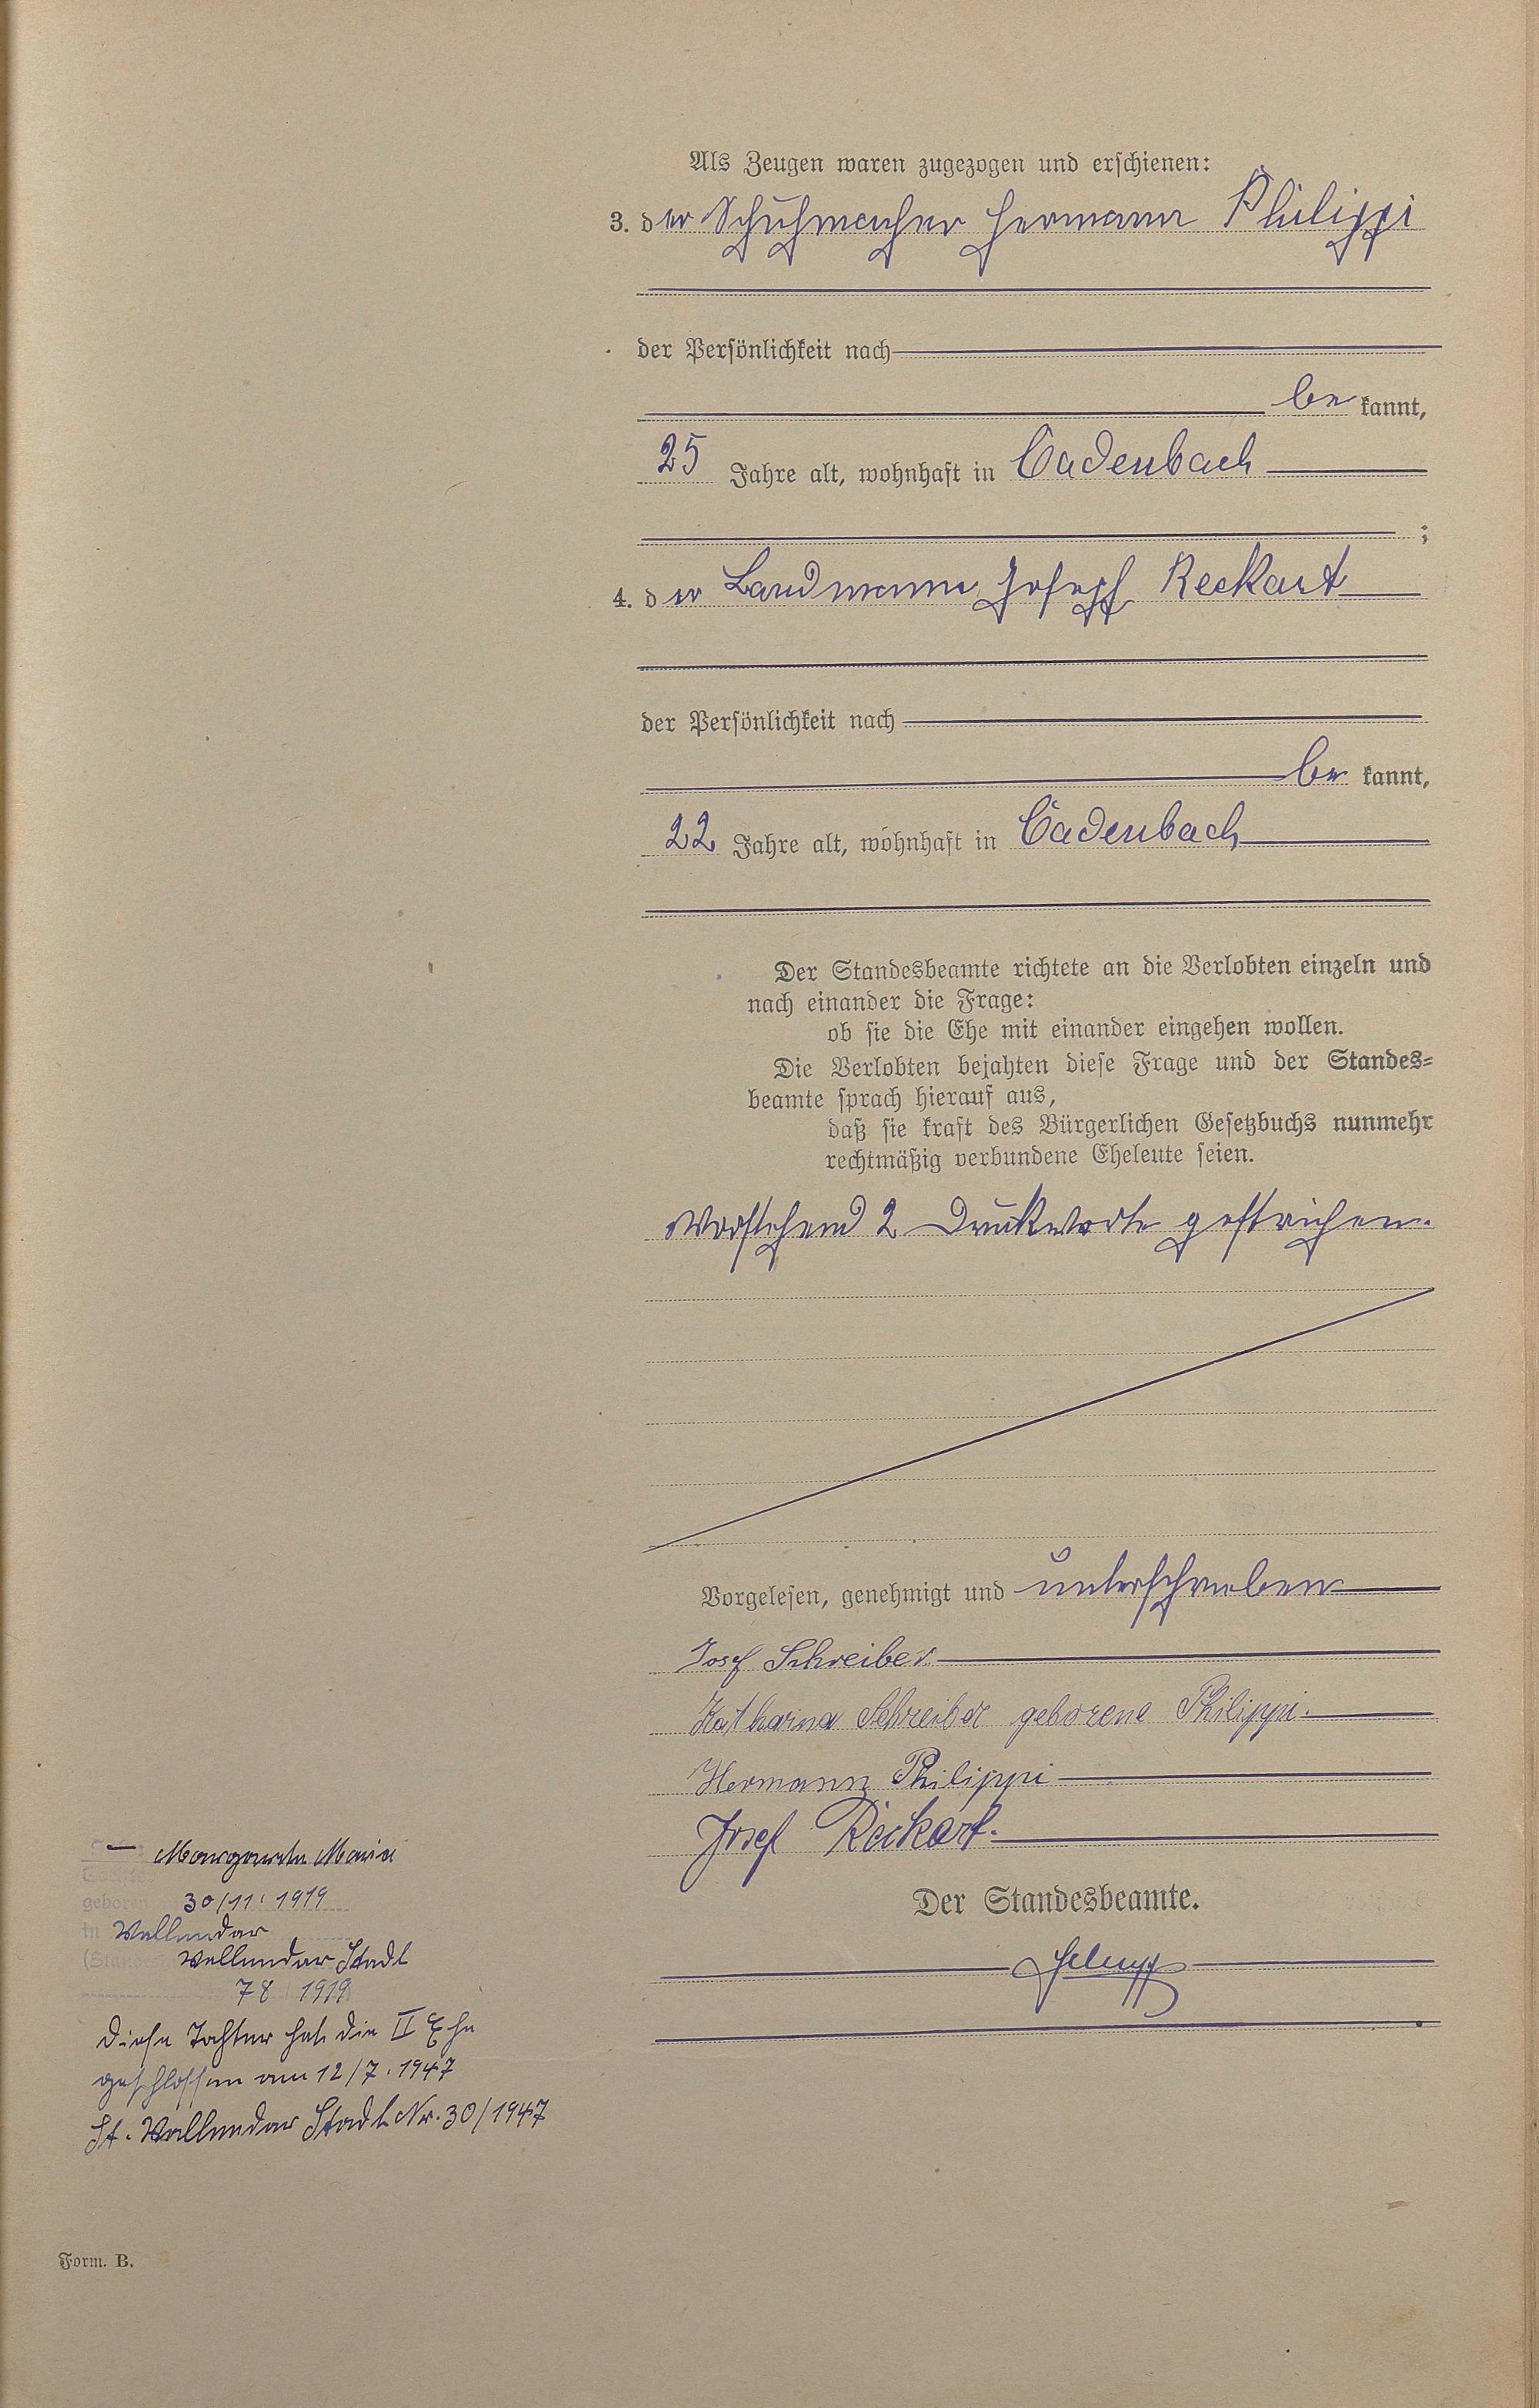 Als Zeugen waren zugezogen und erschienen:
3. der Schuhmacher Hermann Philippi
der Persönlichkeit nach
be kannt,
25 Jahre alt, wohnhaft in Cadenbach
;
4. der Landmann Joseph Reckart
der Persönlichkeit nach
be kannt,
22 Jahre alt, wohnhaft in Cadenbach
Der Standesbeamte richtete an die Verlobten einzeln und
nach einander die Frage:
ob sie die Ehe mit einander eingehen wollen.
Die Verlobten bejahten diese Frage und der Standes-
beamte sprach hierauf aus,
daß sie kraft des Bürgerlichen Gesetzbuchs nunmehr
rechtmäßig verbundene Eheleute seien.
Vorstehend 2 Druckworte gestrichen.
Vorgelesen, genehmigt und unterschrieben
Josef Schreiber
Katharina Schreiber geborene Philippi.
Hermann Philippi
Josef Reckart.
Der Standesbeamte.
Margareta Maria
geboren 30/11. 1919
in Vallendar
Vallendar Stadt
78 1919
Diese Tochter hat die II Ehe
geschlossen am 12/7. 1947
St. Vallendar Stadt Nr. 30/1947
Form. B.